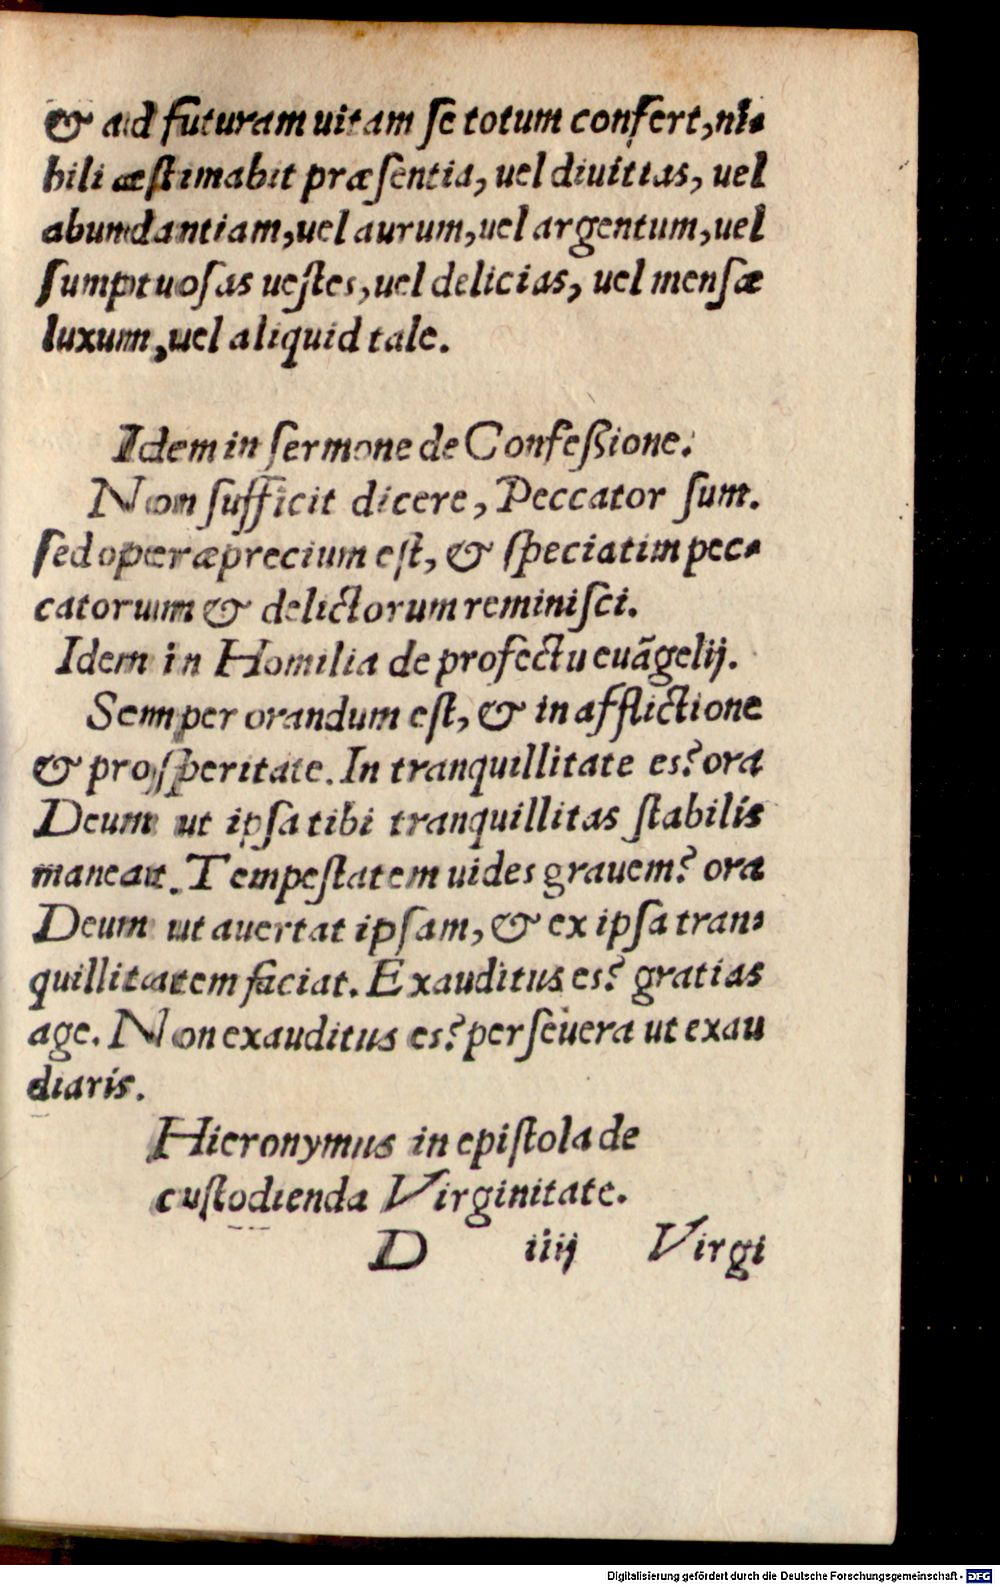 & ad futuram uitam ſe totum confert, ni-
hili æſtimabit præſentia, uel diuitias, uel
abundantiam, uel aurum, uel argentum, uel
ſumptuoſas ueſtes, uel delicias, uel menſæ
luxum, uel aliquid tale.
Idem in ſermone de Confeßione.
Non ſufficit dicere, Peccator ſum.
ſed operæprecium eſt, & ſpeciatim pec-
catorum & delictorum reminiſci.
Idem in Homilia de profectu euāgelij.
Semper orandum eſt, & in afflictione
& proſperitate. In tranquillitate es? ora
Deum ut ipſa tibi tranquillitas ſtabilis
maneat. Tempeſtatem uides grauem? ora
Deum ut auertat ipſam, & ex ipſa tran-
quillitatem faciat. Exauditus es? gratias
age. Non exauditus es? perſeuera ut exau
diaris.
Hieronymus in epiſtola de
cuſtodienda Virginitate.
D iiij Virgi
Digitalisierung gefördert durch die Deutsche Forschungsgemeinschaft - DFG